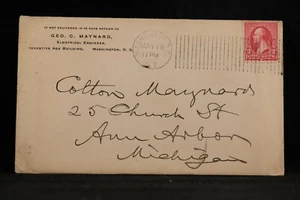 IF NOT DELIVERED IN 10 DAYS RETURN TO
GEO. C. MAYNARD,
ELECTRICAL ENGINEER,
INVENTIVE AGE BUILDING, WASHINGTON, D. C.
Cotton Maynard
25 Church St
Ann Arbor
Michigan